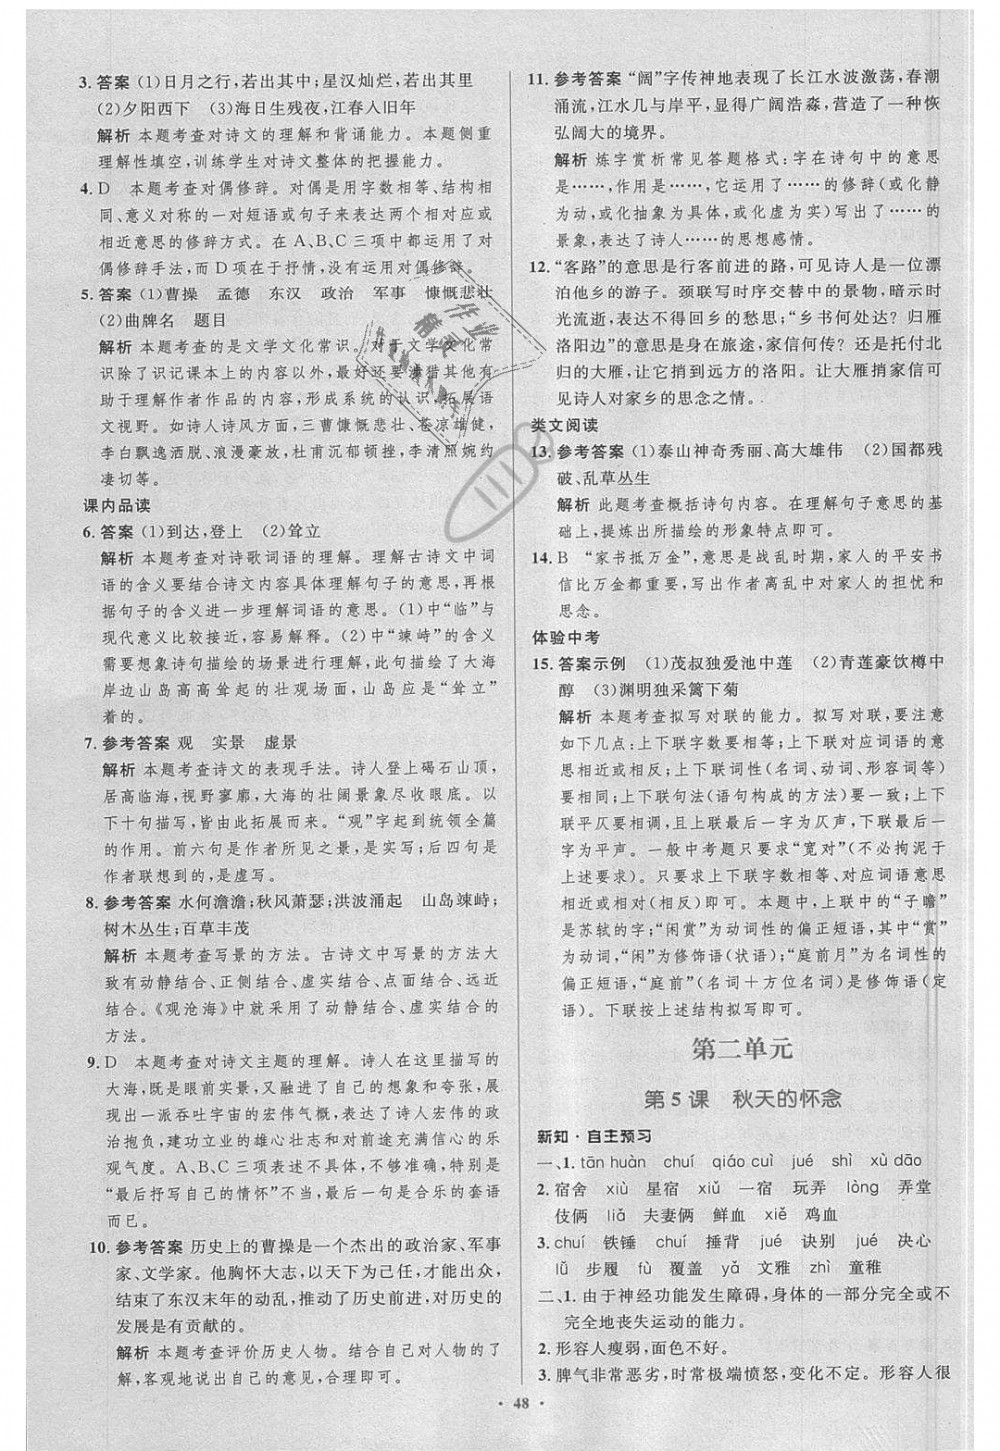 3. 答案 (1)日月之行,若出其中;星汉灿烂,若出其里
(2)夕阳西下　(3)海日生残夜,江春入旧年
解析 本题考查对诗文的理解和背诵能力。本题侧重
理解性填空,训练学生对诗文整体的把握能力。
4. D　本题考查对偶修辞。对偶是用字数相等、结构相
同、意义对称的一对短语或句子来表达两个相对应或
相近意思的修辞方式。在A、B、C三项中都运用了对
偶修辞手法,而D项在于抒情,没有运用对偶修辞。
5. 答案 (1)曹操　孟德　东汉　政治　军事　慷慨悲壮
(2)曲牌名　题目
解析 本题考查的是文学文化常识。对于文学文化常
识除了识记课本上的内容以外,最好还要涉猎其他有
助于理解作者作品的内容,形成系统的认识,拓展语
文视野。如诗人诗风方面,三曹慷慨悲壮、苍凉雄健,
李白飘逸洒脱、浪漫豪放,杜甫沉郁顿挫,李清照婉约
凄切等。
课内品读
6. 答案 (1)到达,登上　(2)耸立
解析 本题考查对诗歌词语的理解。理解古诗文中词
语的含义要结合诗文内容具体理解句子的意思,再根
据句子的含义进一步理解词语的意思。(1)中“临”与
现代意义比较接近,容易解释。(2)中“竦峙”的含义
需要想象诗句描绘的场景来理解,此句描绘了大海
岸边山岛高高耸起的壮观场面,山岛应是“耸立”
着的。
7. 参考答案 观　实景　虚景
解析 本题考查诗文的表现手法。诗人登上碣石山顶,
居高临海,视野寥廓,大海的壮阔景象尽收眼底。以
下十句描写,皆由此拓展而来。“观”字起到统领全篇
的作用。前六句是作者所见之景,是实写;后四句是
作者联想到的,是虚写。
8. 参考答案 水何澹澹;秋风萧瑟;洪波涌起　山岛竦峙;
树木丛生;百草丰茂
解析 本题考查写景的方法。古诗文中写景的方法大
致有动静结合、正侧结合、虚实结合、点面结合、远近
结合。《观沧海》中就采用了动静结合、虚实结合的
方法。
9. D　本题考查对诗文主题的理解。诗人在这里描写的
大海,既是眼前实景,又融进了自己的想象和夸张,展
现出一派吞吐宇宙的宏伟气概,表达了诗人宏伟的政
治抱负,建功立业的雄心壮志和对前途充满信心的乐
观气度。A、B、C三项表述不具体,不够准确,特别是
“最后抒写自己的情怀”不当,最后一句是合乐的套语
而已。
10. 参考答案 历史上的曹操是一个杰出的政治家、军事
家、文学家。他胸怀大志,以天下为己任,才能出众,
结束了东汉末年的动乱,推动了历史前进,对历史的
发展是有贡献的。
解析 本题考查评价历史人物。结合自己对人物的了
解,客观地说出自己的意见,合理即可。
11. 参考答案 “阔”字传神地表现了长江水波激荡,春潮
涌流,江水几与岸平,显得广阔浩淼,营造了一种恢
弘阔大的境界。
解析 炼字赏析常见答题格式:字在诗句中的意思
是……,作用是……,它运用了……的修辞(或化静
为动,或化抽象为具体,或化虚为实)写出了……的
景象,表达了诗人……的思想感情。
12. “客路”的意思是行客前进的路,可见诗人是一位漂
泊他乡的游子。颈联写时序交替中的景物,暗示着时
光流逝,表达不得回乡的愁思;“乡书何处达?归雁
洛阳边”的意思是:身在旅途,家信何传?还是托付北
归的大雁,让它捎到远方的洛阳。大雁捎家信可
见诗人对家乡的思念之情。
类文阅读
13. 参考答案 (1)泰山神奇秀丽、高大雄伟　(2)国都残
破、乱草丛生
解析 此题考查概括诗句内容。在理解句子意思的基
础上,提炼出所描绘的形象特点即可。
14. B　“家书抵万金”,意思是战乱时期,家人的平安书
信比万金都重要,写出作者离乱中对家人的担忧和
思念。
体验中考
15. 答案示例　(1)茂叔独爱池中莲　(2)青莲豪饮樽中
醇　(3)渊明独采篱下菊
解析 本题考查拟写对联的能力。拟写对联,要注意
如下几点:上下联字数要相等;上下联对应词语意思
相近或相反;上下联词性(名词、动词、形容词等)
要相同;上下联句法(语句构成的方法)要相同;上下
联平仄要相调,且上联最后一字为仄声,下联最后一
字为平声。一般中考题只要求“宽对”(不必拘泥于
上述要求)。只要求字数相等、对应词语词性、意思
相同(相近或相反)即可。本题中,上联中的“子瞻”
是苏轼的字;“闲赏”为动词性的偏正短语,其中“赏”
为动词,“闲”为修饰语(状语);“庭前月”为名词性的
偏正短语,“庭前”(名词＋方位名词)是修饰语(定
语)。下联按上述结构拟写即可。
第二单元
第5课　秋天的怀念
新知·自主预习
一、1. tān huàn　chuí　qiáo cuì　jué　shì　xù dāo
2. 宿舍　xiù　星宿　xiǔ　一宿　玩弄　lòng　弄堂
伎俩　liǎ　夫妻俩　鲜血　xiě　鸡血
3. chuí　铁锤　chuí　捶背　jué　诀别　jué　决心
lǚ　步履　fù　覆盖　yǎ　文雅　zhì　童稚
二、1. 由于神经功能发生障碍,身体的一部分完全或不
完全地丧失运动的能力。
2. 形容人瘦弱,面色不好。
3. 脾气非常恶劣,时常极端愤怒,变化不定。形容人很
· 48 ·